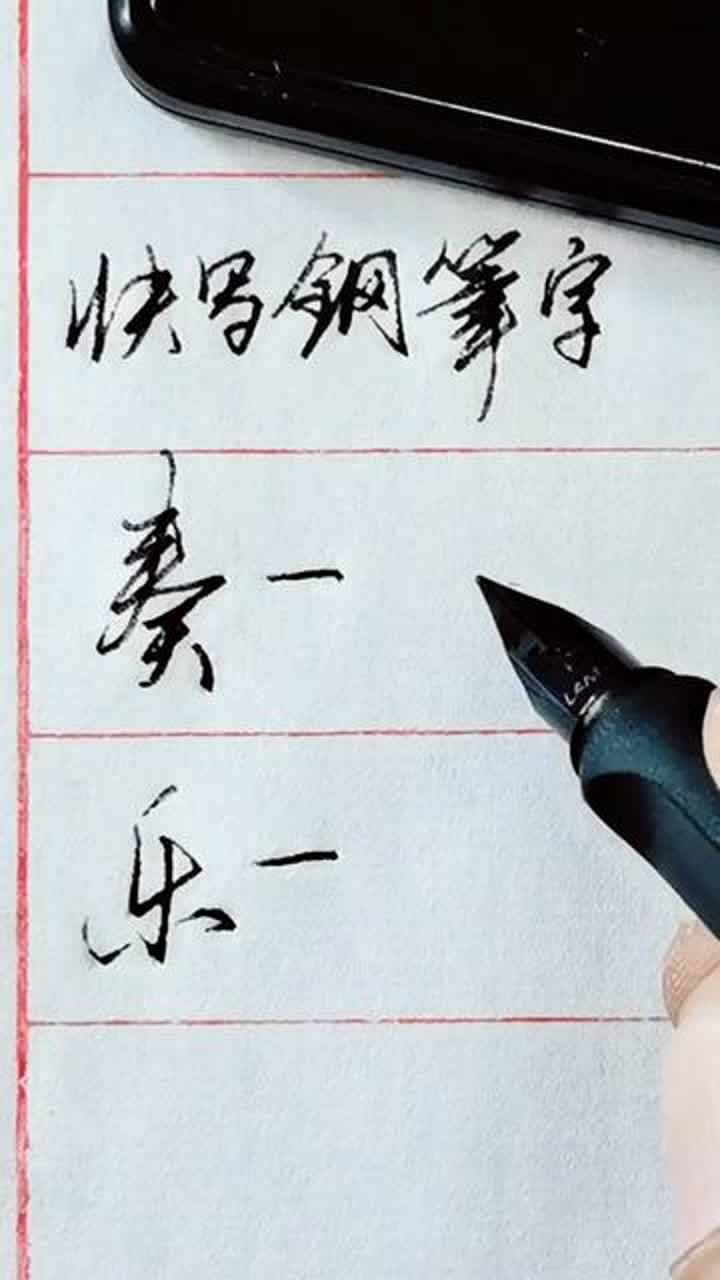 快写钢笔字
奏一
乐一
LAMY